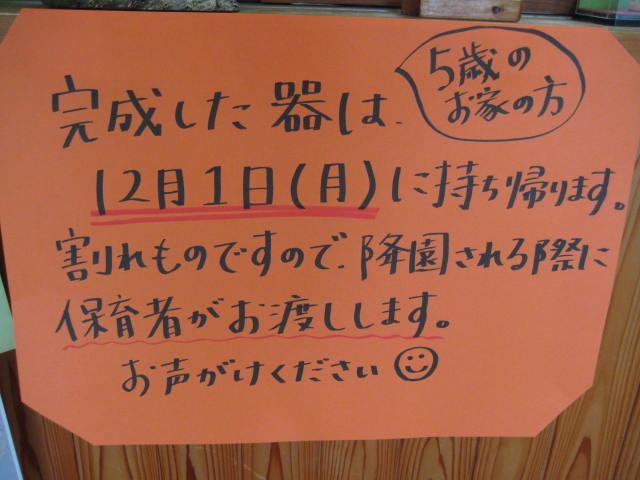 5歳の
お家の方
完成した器は、
12月1日(月)に持ち帰ります。
割れものですので、降園される際に
保育者がお渡しします。
お声がけください